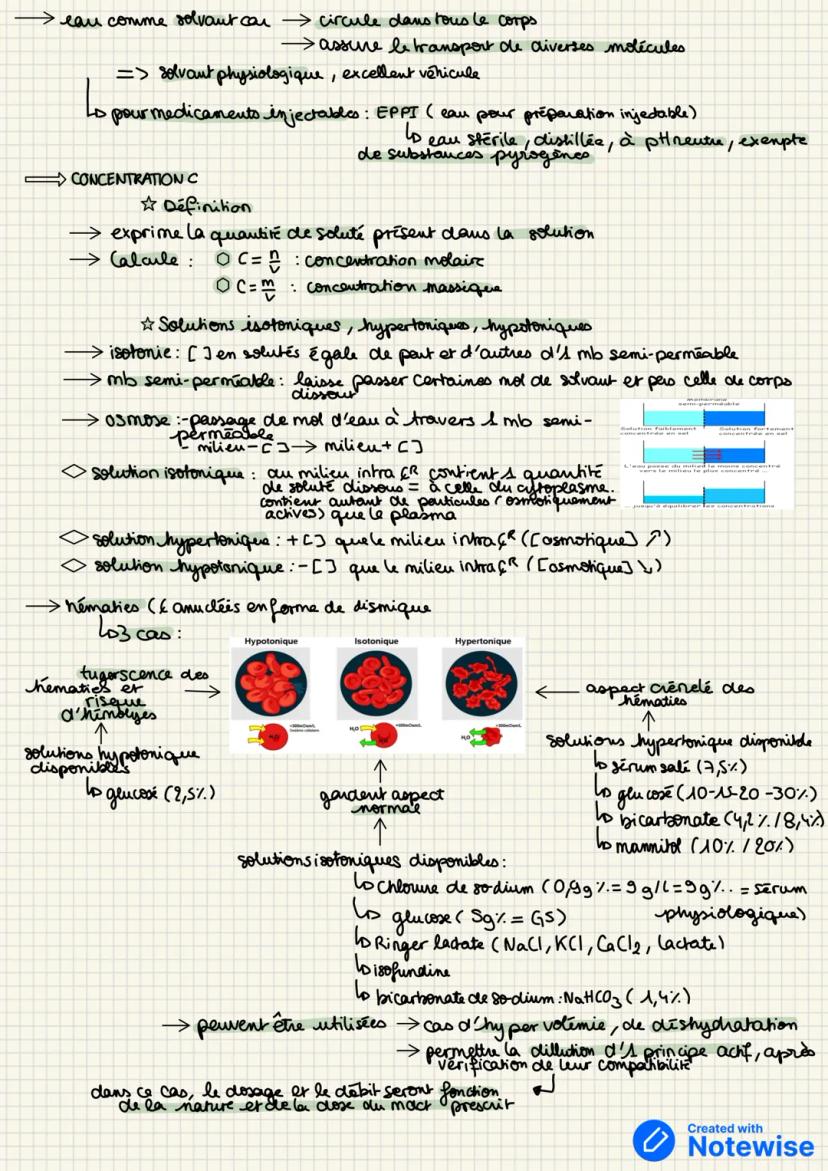 → eau comme solvant car → circule dans tous le corps
→ assure le transport de diverses molécules
=> solvant physiologique, excellent véhicule
↳ pour medicaments injectables : EPPI (eau pour préparation injectable)
↳ eau stérile, distillée, à pH neutre, exempte
de substances pyrogènes
⇒ CONCENTRATION C
☆ Définition
→ exprime la quantité de soluté présent dans la solution
→ Calcule : ⬡ C = n/v : concentration molaire
⬡ C = m/v : concentration massique
☆ Solutions isotoniques, hypertoniques, hypotoniques
→ isotonie : [ ] en solutés égale de part et d'autres d'1 mb semi-perméable
→ mb semi-perméable : laisse passer certaines mol de solvant et pas celle de corps
dissout
→ osmose : - passage de mol d'eau à travers 1 mb semi-
perméable
- milieu - [ ] → milieu + [ ]
membrane
semi-perméable
Solution faiblement concentrée en sel
Solution fortement concentrée en sel
L'eau passe du milieu le moins concentré
vers le milieu le plus concentré ...
... jusqu'à équilibrer les concentrations
◇ solution isotonique : au milieu intra çR contient 1 quantité
de soluté dissous = à celle du cytoplasme.
contient autant de particules (osmotiquement
actives) que le plasma
◇ solution hypertonique : + [ ] que le milieu intra çR ([osmotique] ↗)
◇ solution hypotonique : - [ ] que le milieu intra çR ([osmotique] ↘)
→ hématies (ç anuclées en forme de dismique
↳ 3 cas :
Hypotonique Isotonique Hypertonique
H₂O H₂O H₂O
tugerscence des
hématies et
risque
d'hémolyses
solutions hypotonique
disponibles
↳ glucosé (2,5%)
gardent aspect
normale
aspect crénelé des
hématies
solutions hypertonique disponible
↳ sérum salé (7,5%)
↳ glucosé (10-15-20-30%)
↳ bicarbonate (4,2% / 8,4%)
↳ mannitol (10% / 20%)
solutions isotoniques disponibles :
↳ Chlorure de sodium (0,9g% = 9 g/l = 9g%. = sérum
physiologique)
↳ glucose (5g% = G5)
↳ Ringer lactate (NaCl, KCl, CaCl₂, lactate)
↳ isofundine
↳ bicarbonate de sodium : NaHCO₃ (1,4%)
→ peuvent être utilisées → cas d'hypervolémie, de déshydratation
→ permettre la dillution d'1 principe actif, après
vérification de leur compatibilité
dans ce cas, le dosage et le débit seront fonction
de la nature et de la dose du mdct prescrit
Created with
Notewise